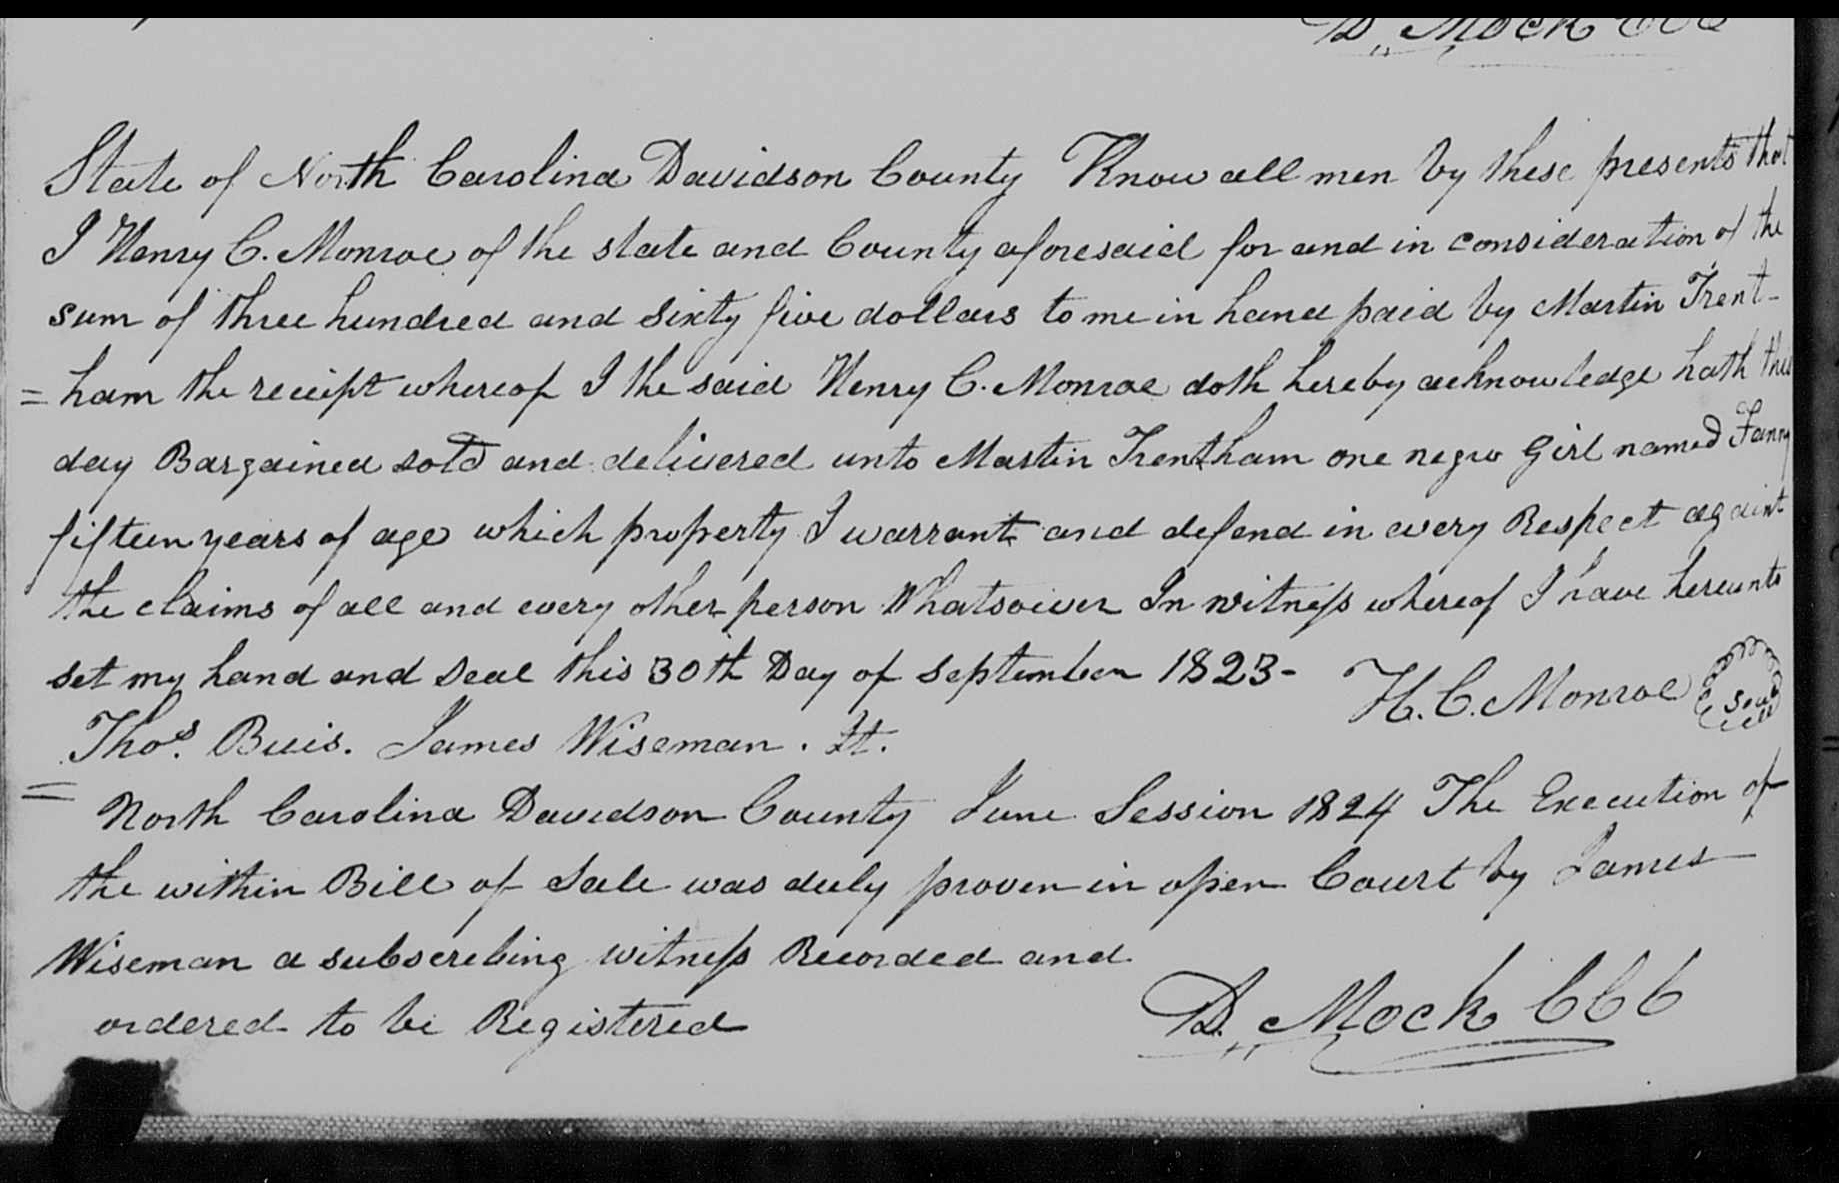 D. Mock CCC
State of North Carolina Davidson County Know all men by these presents that
I Henry C. Monroe of the state and County aforesaid for and in consideration of the
sum of three hundred and sixty five dollars to me in hand paid by Martin Trent-
=ham the receipt whereof I the said Henry C. Monroe doth hereby acknowledge hath this
day Bargained sold and delivered unto Martin Trentham one negro Girl named Fanny
fifteen years of age which property I warrant and defend in every Respect againt
the claims of all and every other person Whatsoiver In witness whereof I have hereunto
set my hand and seal this 30th Day of September 1823- H. C. Monroe Seal
Thos. Buis. James Wiseman. Jt.
= North Carolina Davidson County June Session 1824 The Execution of
the within Bill of Sale was duly proven in open Court by James
Wiseman a subscribing witness Recorded and
ordered to be Registered D. Mock CCC